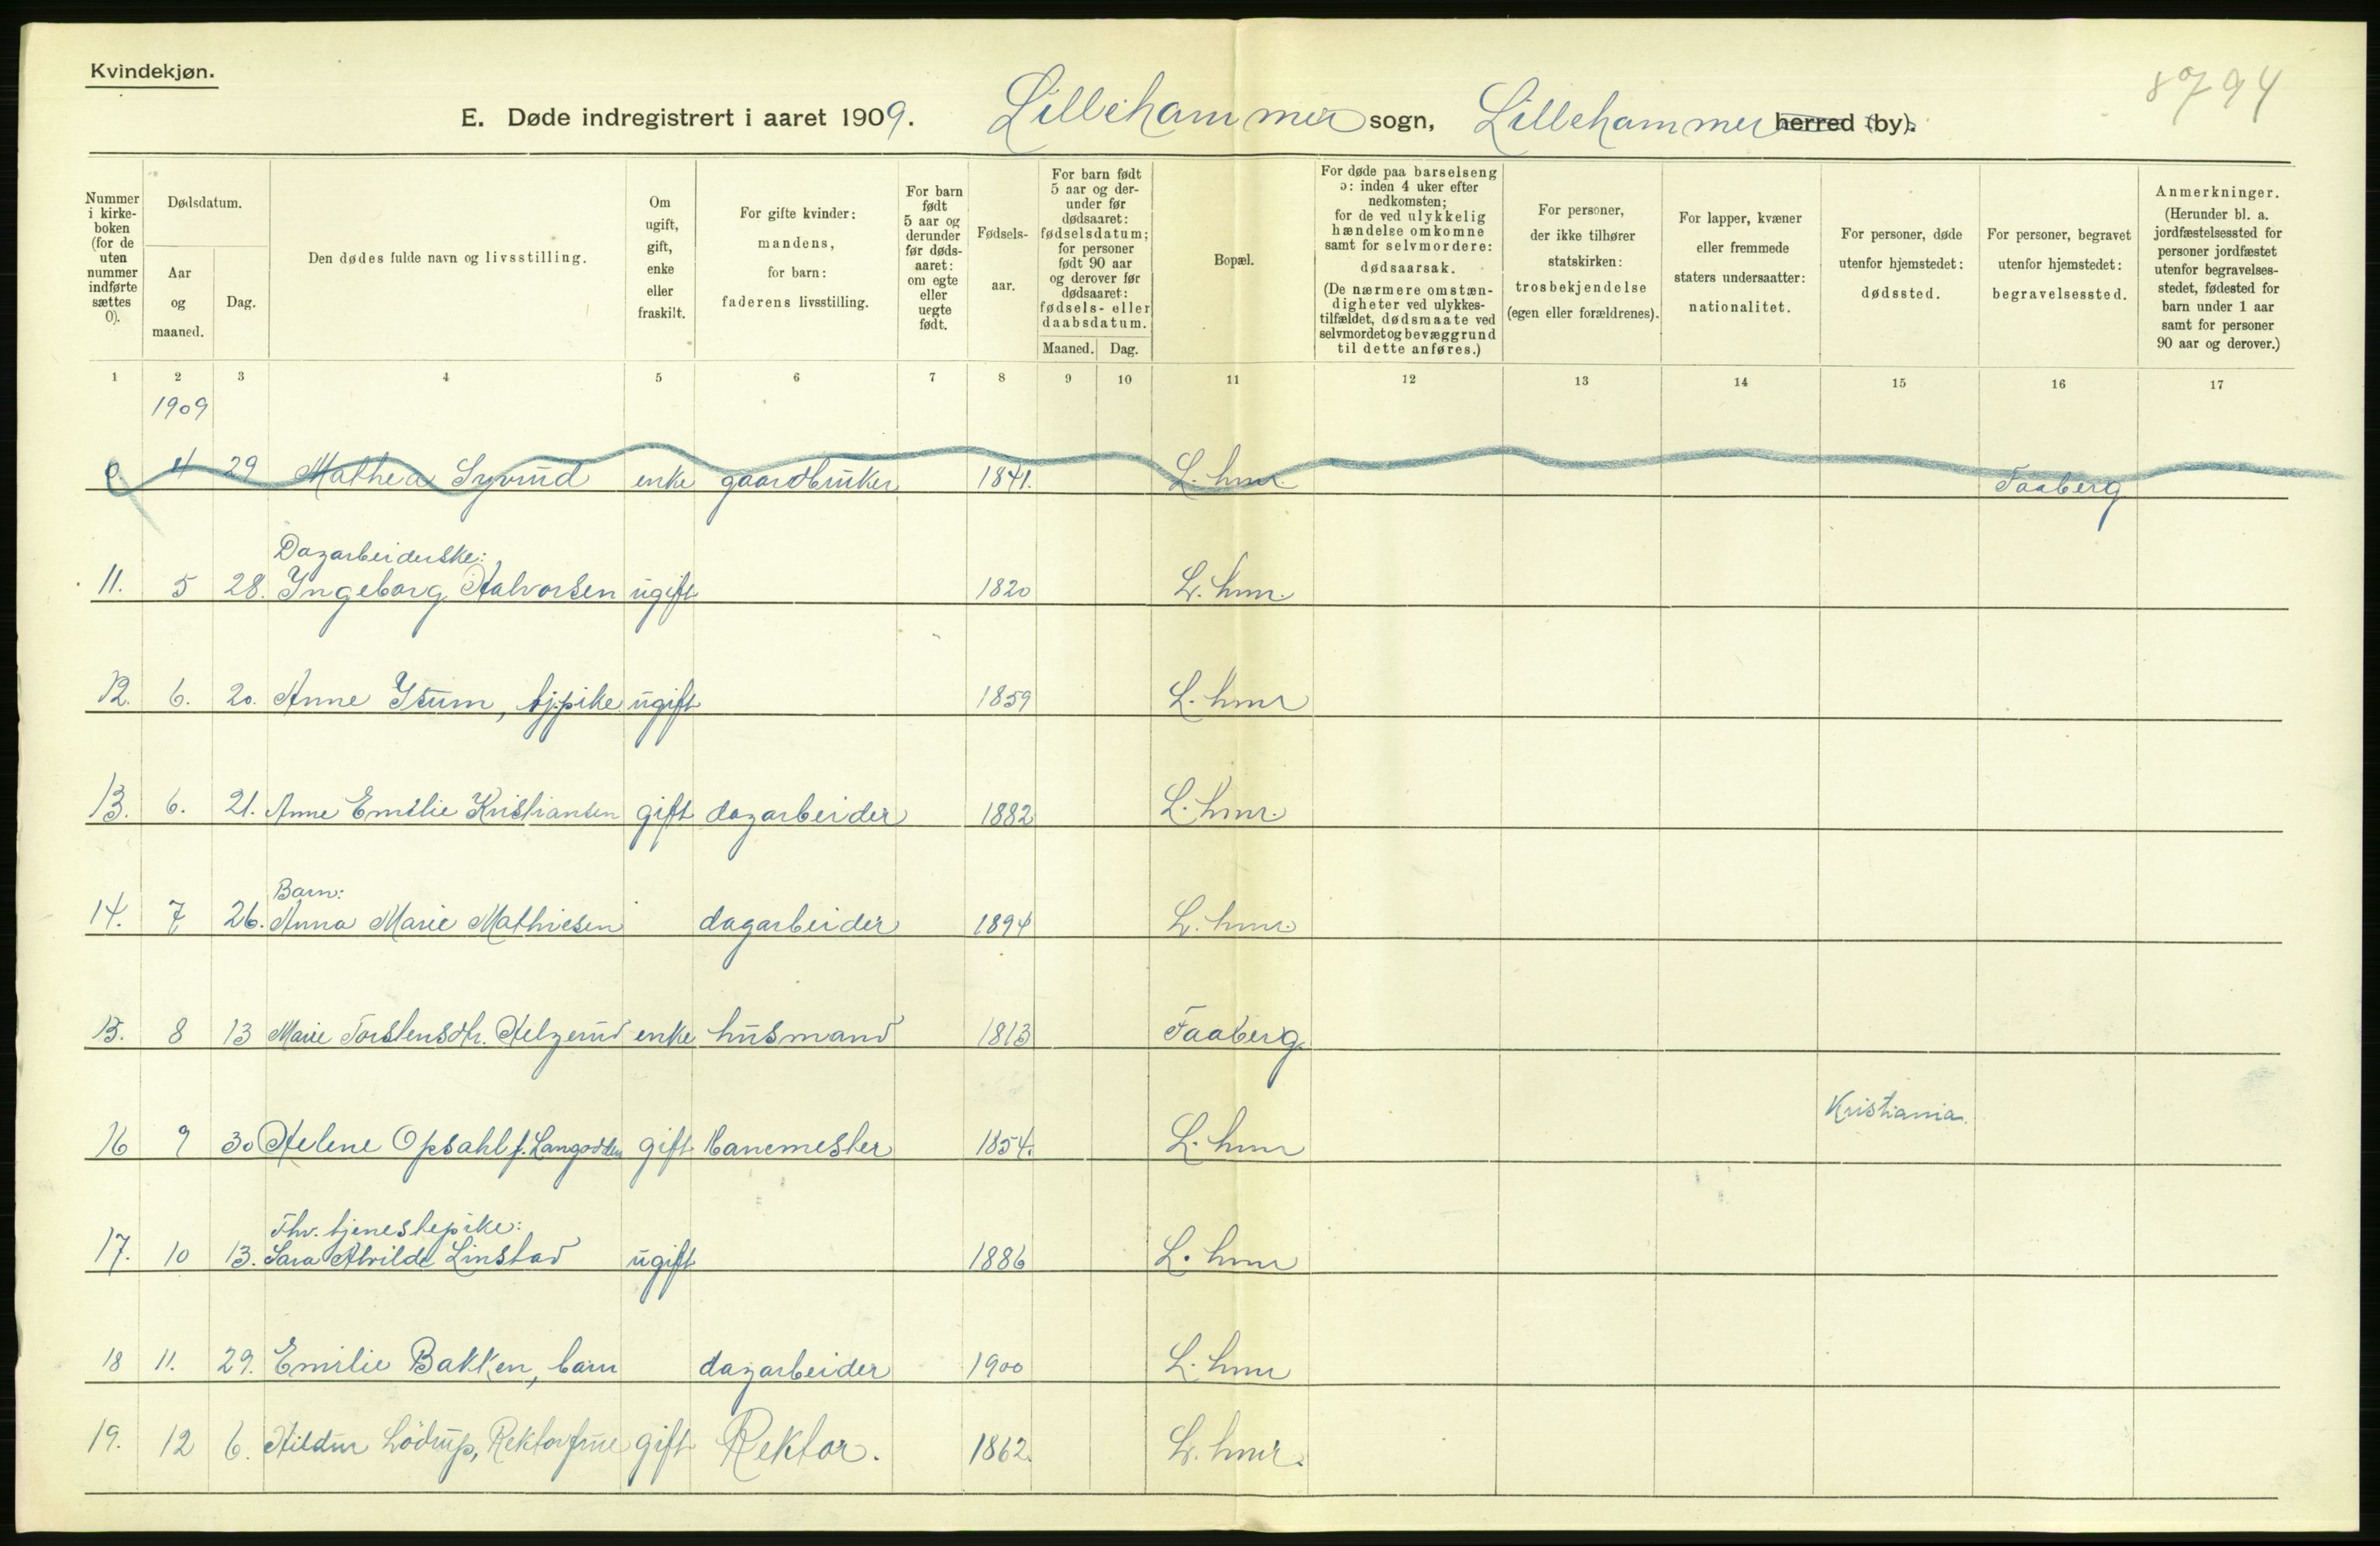 Kvindekjøn.
8794
E. Døde indregistrert i aaret 1909. Lillehammer sogn, Lillehammer herred (by).
Nummer i kirkeboken (for de uten nummer indførte sættes 0).
Dødsdatum.
Aar og maaned.
Dag.
Den dødes fulde navn og livsstilling.
Om ugift, gift, enke eller fraskilt.
For gifte kvinder: mandens, for barn: faderens livsstilling.
For barn født 5 aar og derunder før dødsaaret: om egte eller uegte født.
Fødselsaar.
For barn født 5 aar og derunder før dødsaaret: fødselsdatum; for personer født 90 aar og derover før dødsaaret: fødsels- eller daabsdatum.
Maaned. Dag.
Bopæl.
For døde paa barselseng ɔ: inden 4 uker efter nedkomsten; for de ved ulykkelig hændelse omkomne samt for selvmordere: dødsaarsak. (De nærmere omstændigheter ved ulykkestilfældet, dødsmaate ved selvmordet og bevæggrund til dette anføres.)
For personer, der ikke tilhører statskirken: trosbekjendelse (egen eller forældrenes).
For lapper, kvæner eller fremmede staters undersaatter: nationalitet.
For personer, døde utenfor hjemstedet: dødssted.
For personer, begravet utenfor hjemstedet: begravelsessted.
Anmerkninger. (Herunder bl. a. jordfæstelsessted for personer jordfæstet utenfor begravelsesstedet, fødested for barn under 1 aar samt for personer 90 aar og derover.)
1 2 3 4 5 6 7 8 9 10 11 12 13 14 15 16 17
1909
0 4 29 Mathea Syvrud enke gaardbruker 1841. L. hmr. Faaberg
Dagarbeiderske:
11. 5 28. Ingeborg Halvorsen ugift 1820 L. hmr.
12. 6. 20. Anne Isum, tj.pike ugift 1859 L. hmr
13. 6. 21. Anne Emilie Kristiansen gift dagarbeider 1882 L. hmr.
Barn:
14. 7 26. Anna Marie Mathiesen dagarbeider 1894 L. hmr.
15. 8 13 Marie Torstensdtr. Helgerud enke husmand 1813 Faaberg.
Kristiania.
16 9 30 Helene Opsahl f. Langodden gift banemester 1854. L. hmr
Fhv. tjenestepike:
17. 10 13. Sara Alvilde Linstad ugift 1886 L. hmr
18 11. 29. Emilie Bakken, barn dagarbeider 1900 L. hmr
19. 12 6. Hildur Lödrup, Rektorfrue gift Rektor. 1862. L. hmr.